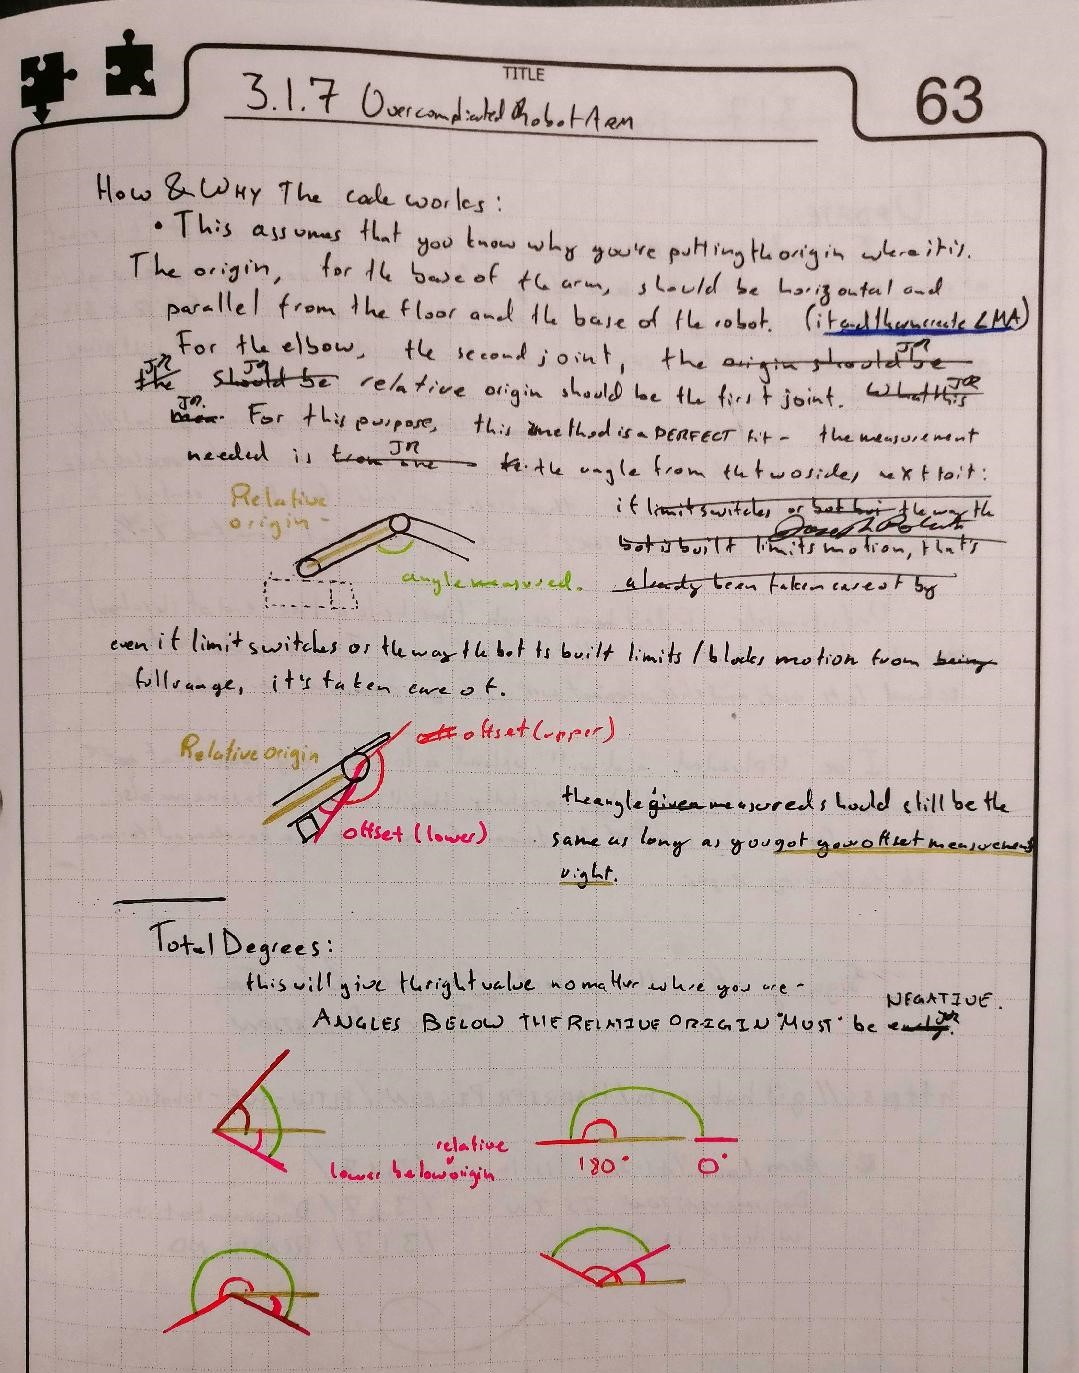 TITLE
3.1.7 Overcomplicated Robot Arm
63
How & WHY The code works:
• This assumes that you know why you're putting the origin where it is.
The origin, for the base of the arm, should be horizontal and
parallel from the floor and the base of the robot. (it and then create LMA)
For the elbow, the second joint, the origin should be JR
the JR should be JR relative origin should be the first joint. What this JR
JR. For this purpose, this method is a PERFECT fit - the measurement
needed is from one JR the angle from the two sides next to it:
Relative
origin -
angle measured.
if limit switches or bot but the way the
Joseph
bot is built limits motion, that's
already been taken care of by
even if limit switches or the way the bot is built limits / blocks motion from being
full range, it's taken care of.
Relative origin
off offset (upper)
offset (lower)
the angle given measured should still be the
same as long as you got your offset measurement
right.
Total Degrees:
this will give the right value no matter where you are -
NEGATIVE.
ANGLES BELOW THE RELATIVE ORIGIN "MUST" be JR
relative
lower below origin
180° 0°